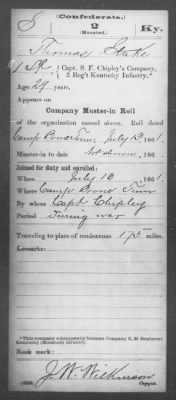 (Confederate.)
S 2 Ky.
(Mounted.)
Thomas
Capt. S. F. Chipley's Company,
2 Reg't Kentucky Infantry.*
Age years.
Appears on
Company Muster-in Roll
of the organization named above. Roll dated
Camp Boone Tenn, July 13, 1861.
Muster-in to date Not shown, 186 .
Joined for duty and enrolled:
When July 13, 1861.
Where Camp Boone Tenn
By whom Capt Chipley
Period During war
Traveling to place of rendezvous 175 miles.
Remarks:
*This company subsequently became Company
Kentucky (Mounted) Infantry.
Book mark:
J. W. Wilkinson
Copyist.